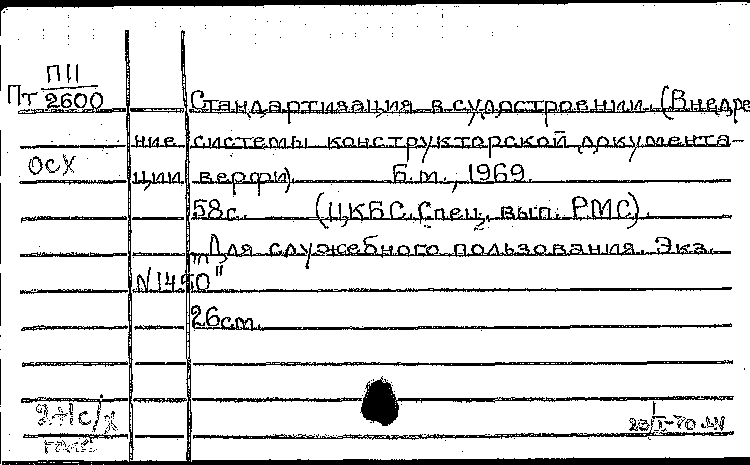 Пт П11
2600
Стандартизация в судостроении. (Внедре
ние системы конструкторской документа-
ОСХ
ции верфи). Б.м., 1969.
58с. (ЦКБС. Спец. вып. РМС).
„Для служебного пользования. Экз.
N1450"
26см.